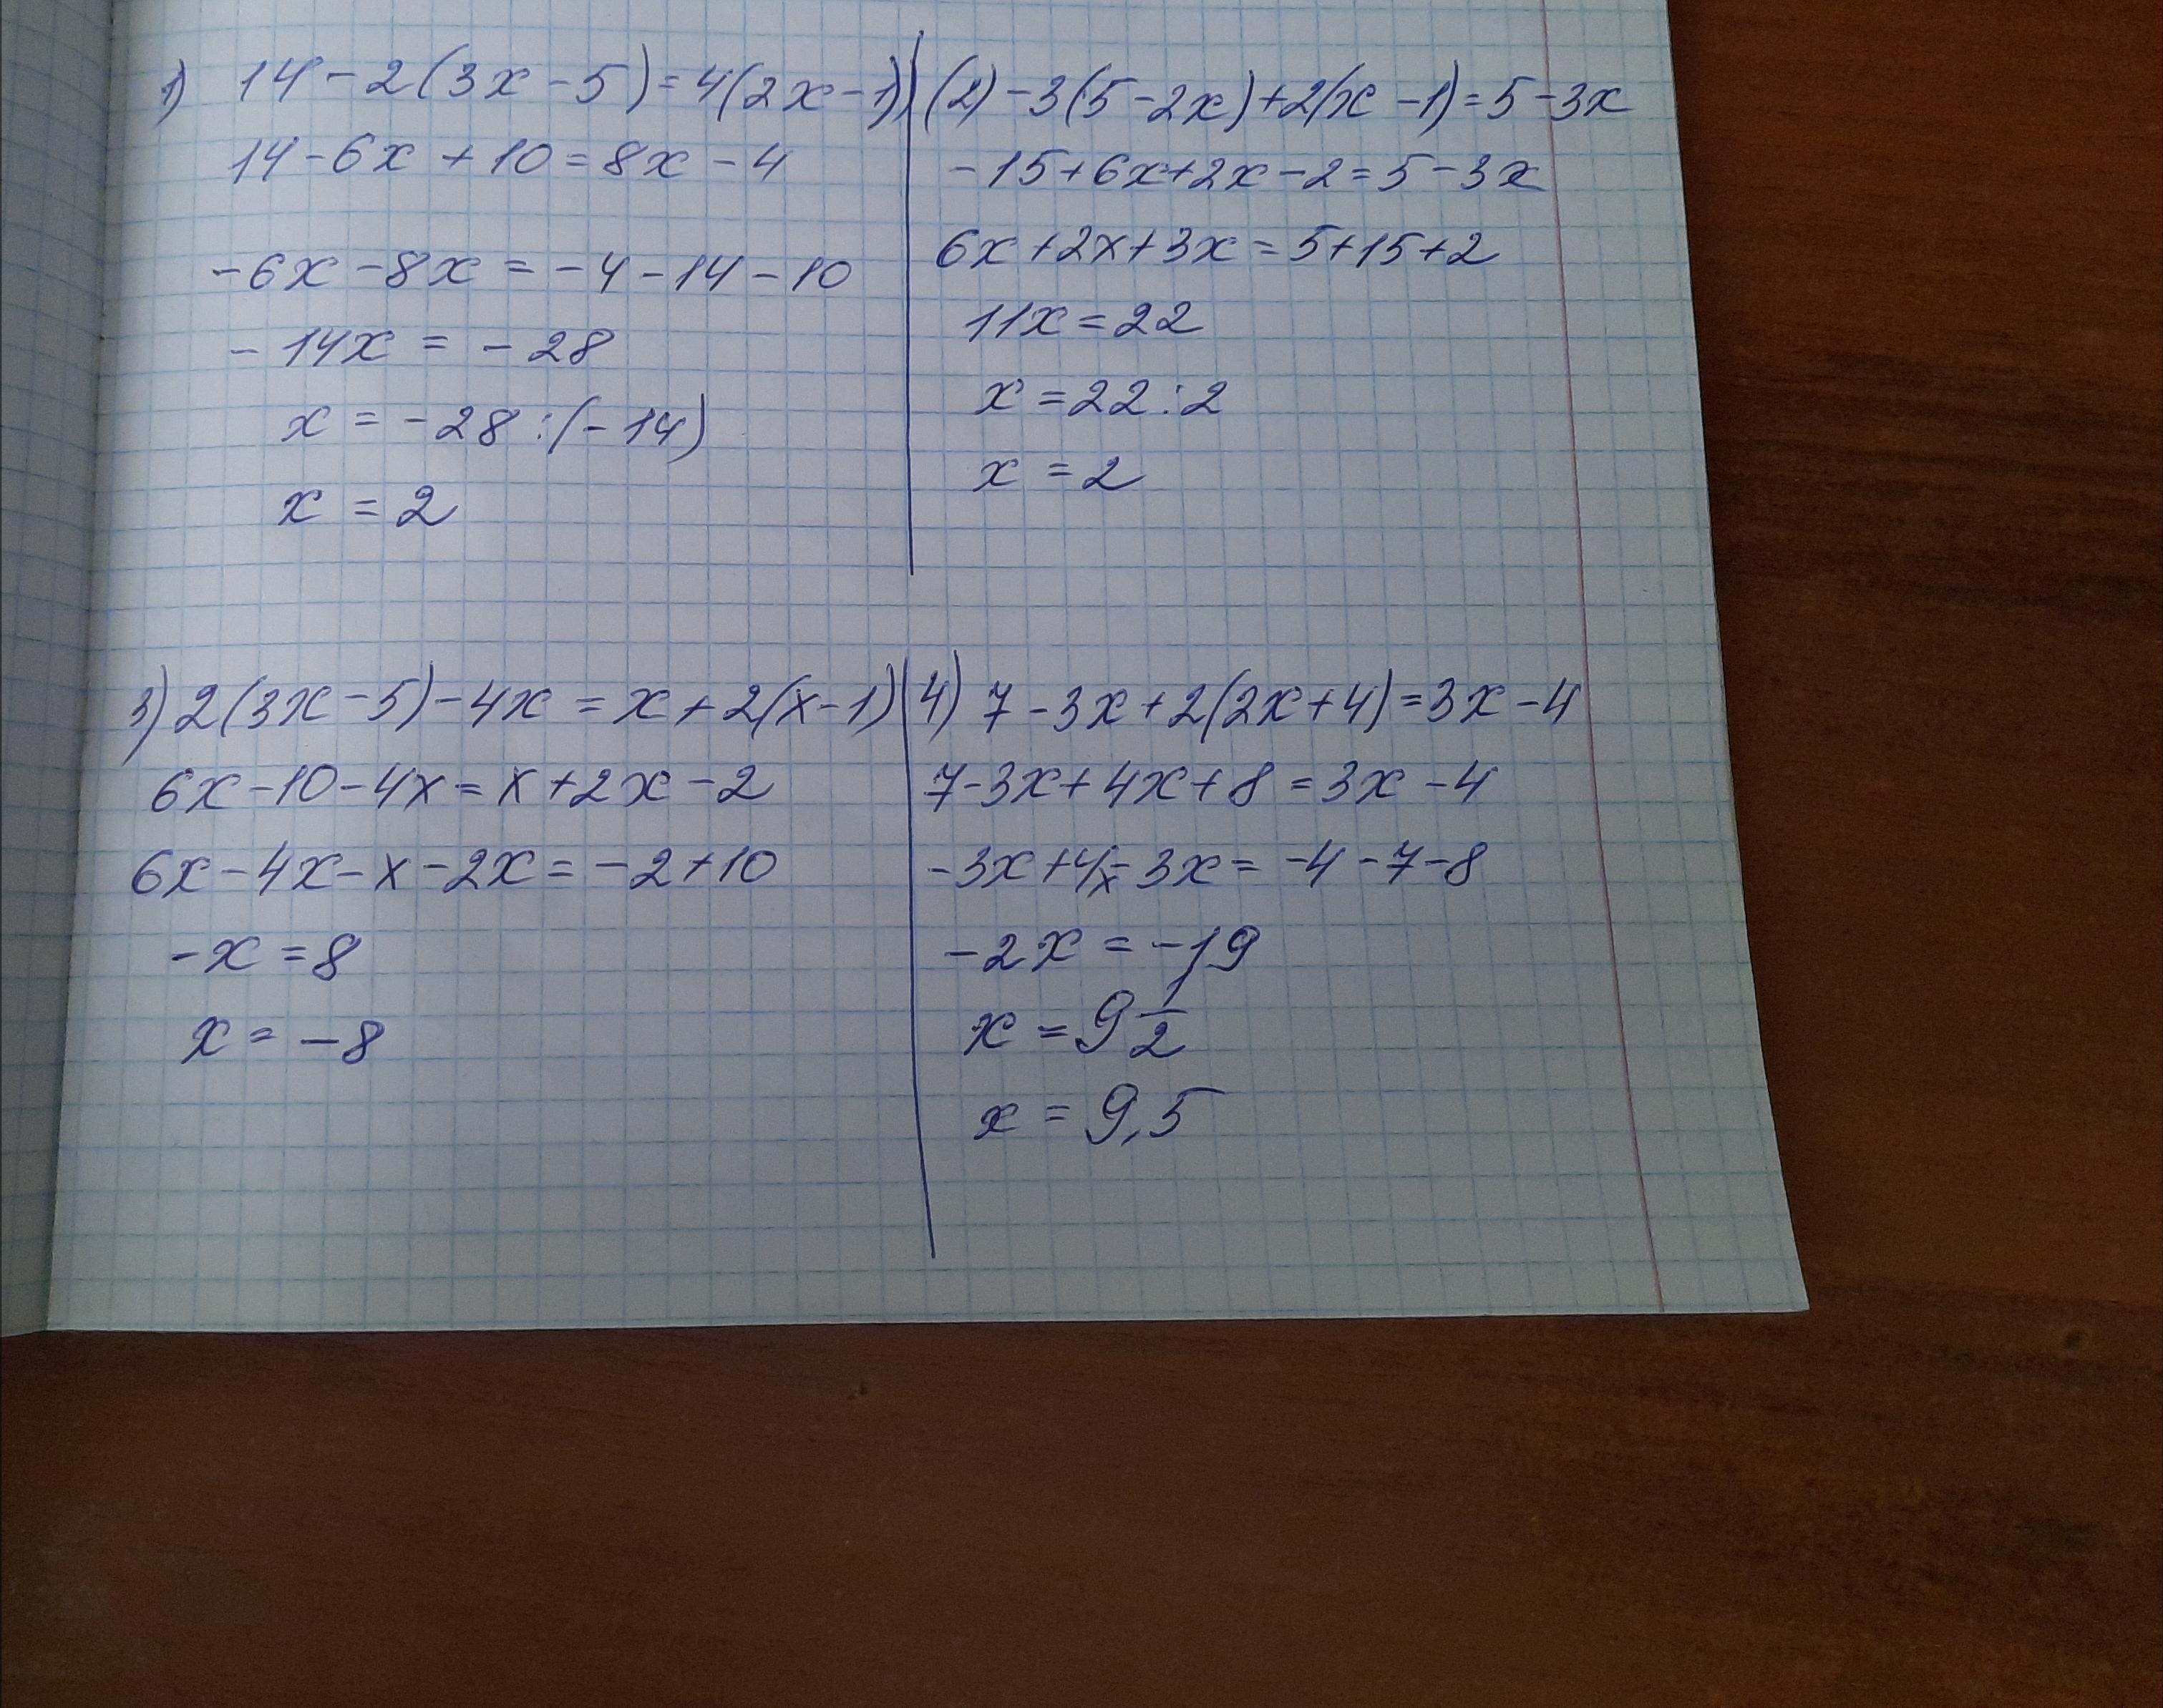 1) 14-2(3x-5)=4(2x-1)
14-6x+10=8x-4
-6x-8x=-4-14-10
-14x=-28
x=-28:(-14)
x=2
(2)-3(5-2x)+2(x-1)=5-3x
-15+6x+2x-2=5-3x
6x+2x+3x=5+15+2
11x=22
x=22:2
x=2
3) 2(3x-5)-4x=x+2(x-1)
6x-10-4x=x+2x-2
6x-4x-x-2x=-2+10
-x=8
x=-8
4) 7-3x+2(2x+4)=3x-4
7-3x+4x+8=3x-4
-3x+4x-3x=-4-7-8
-2x=-19
x=9 1/2
x=9,5